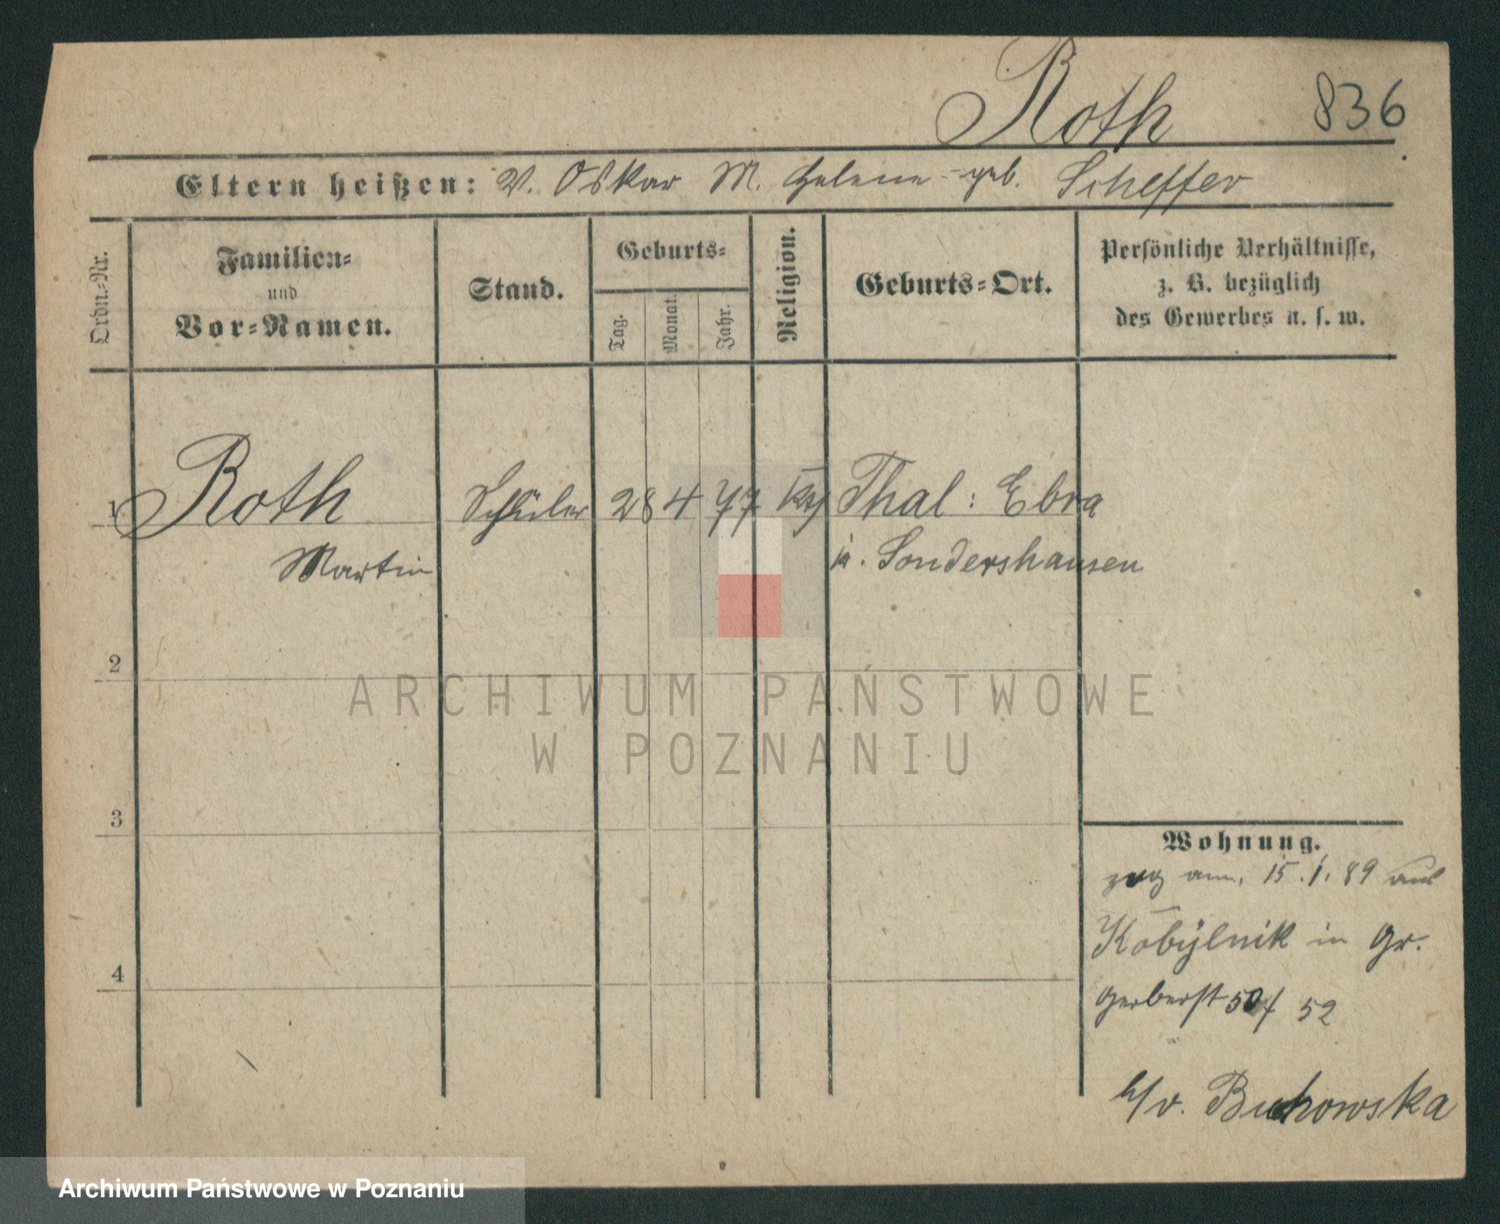 Roth 836
Eltern heißen: V. Oskar M. Helene geb. Scheffer
Ordn.-Nr. Familien- und Vor-Namen. Stand. Geburts- Tag. Monat. Jahr. Religion. Geburts-Ort. Persönliche Verhältnisse, z. B. bezüglich des Gewerbes u. s. w.
1 Roth Schüler 28 4 77 Thal: Ebra
Martin i. Sondershausen
2
3
4
Wohnung.
zog am 15.1.89 aus
Kobylnik in Gr.
Gerberst 50/ 52
b/v. Buchowska
ARCHIWUM PAŃSTWOWE
W POZNANIU
Archiwum Państwowe w Poznaniu